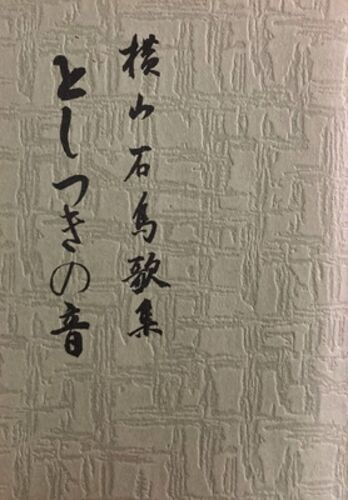 横山石鳥歌集
としつきの音